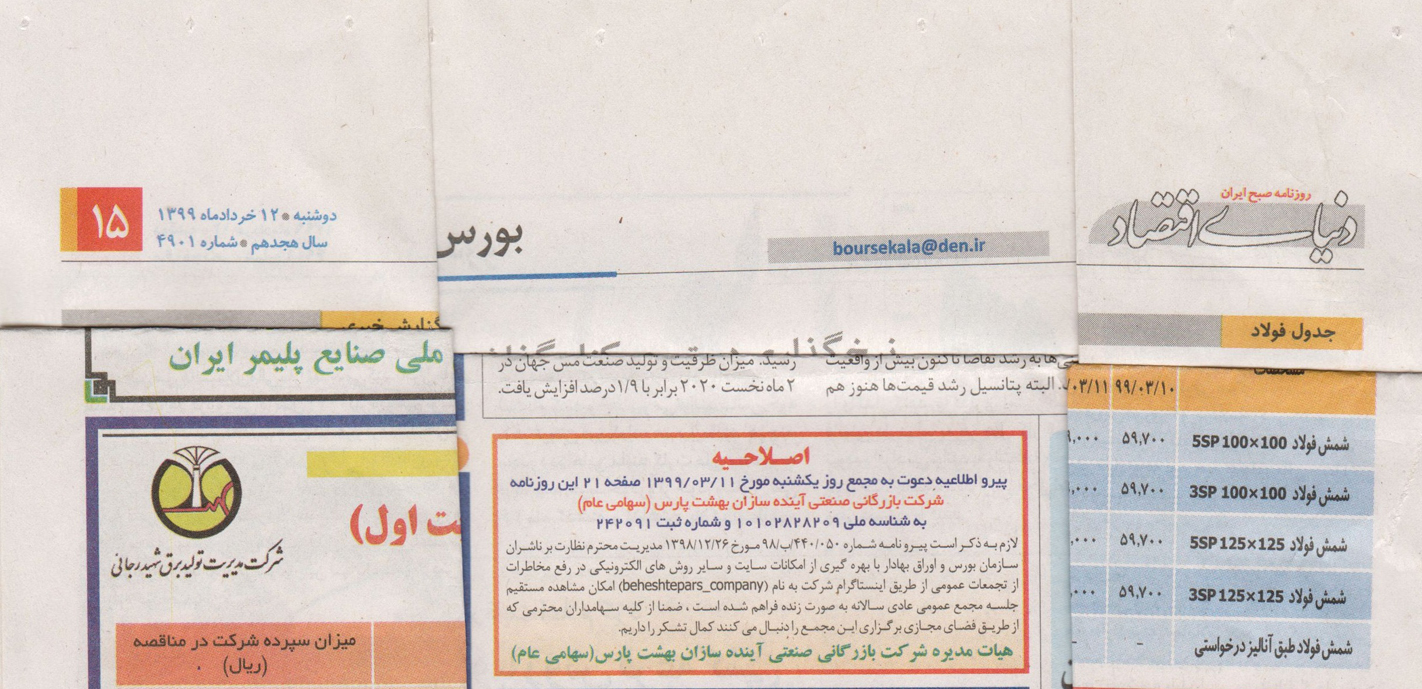 روزنامه صبح ایران
دنیای اقتصاد
boursekala@den.ir
بورس
دوشنبه ۱۲ خردادماه ۱۳۹۹
سال هجدهم شماره ۴۹۰۱
۱۵
جدول فولاد
۹۹/۰۳/۱۰ ۰۳/۱۱
شمش فولاد 5SP 100×100 ۵۹,۷۰۰
شمش فولاد 3SP 100×100 ۵۹,۷۰۰
شمش فولاد 5SP 125×125 ۵۹,۷۰۰
شمش فولاد 3SP 125×125 ۵۹,۷۰۰
شمش فولاد طبق آنالیز درخواستی - -
ها به رشد تقاضا تاکنون بیش از واقعیت
البته پتانسیل رشد قیمت‌ها هنوز هم
رسید. میزان ظرفیت و تولید صنعت مس جهان در
۲ ماه نخست ۲۰۲۰ برابر با ۱/۹ درصد افزایش یافت.
اصـلاحیـه
پیرو اطلاعیه دعوت به مجمع روز یکشنبه مورخ ۱۳۹۹/۰۳/۱۱ صفحه ۲۱ این روزنامه
شرکت بازرگانی صنعتی آینده سازان بهشت پارس (سهامی عام)
به شناسه ملی ۱۰۱۰۲۸۲۸۲۰۹ و شماره ثبت ۲۴۲۰۹۱
لازم به ذکر است پیرو نامه شماره ۴۴۰/۰۵۰/ب/۹۸ مورخ ۱۳۹۸/۱۲/۲۶ مدیریت محترم نظارت بر ناشران
سازمان بورس و اوراق بهادار با بهره گیری از امکانات سایت و سایر روش های الکترونیکی در رفع مخاطرات
از تجمعات عمومی از طریق اینستاگرام شرکت به نام (beheshtepars_company) امکان مشاهده مستقیم
جلسه مجمع عمومی عادی سالانه به صورت زنده فراهم شده است ، ضمنا از کلیه سهامداران محترمی که
از طریق فضای مجازی برگزاری این مجمع را دنبال می کنند کمال تشکر را داریم.
هیات مدیره شرکت بازرگانی صنعتی آینده سازان بهشت پارس(سهامی عام)
ملی صنایع پلیمر ایران
ت اول)
شرکت مدیریت تولید برق شهید رجائی
میزان سپرده شرکت در مناقصه
(ریال)